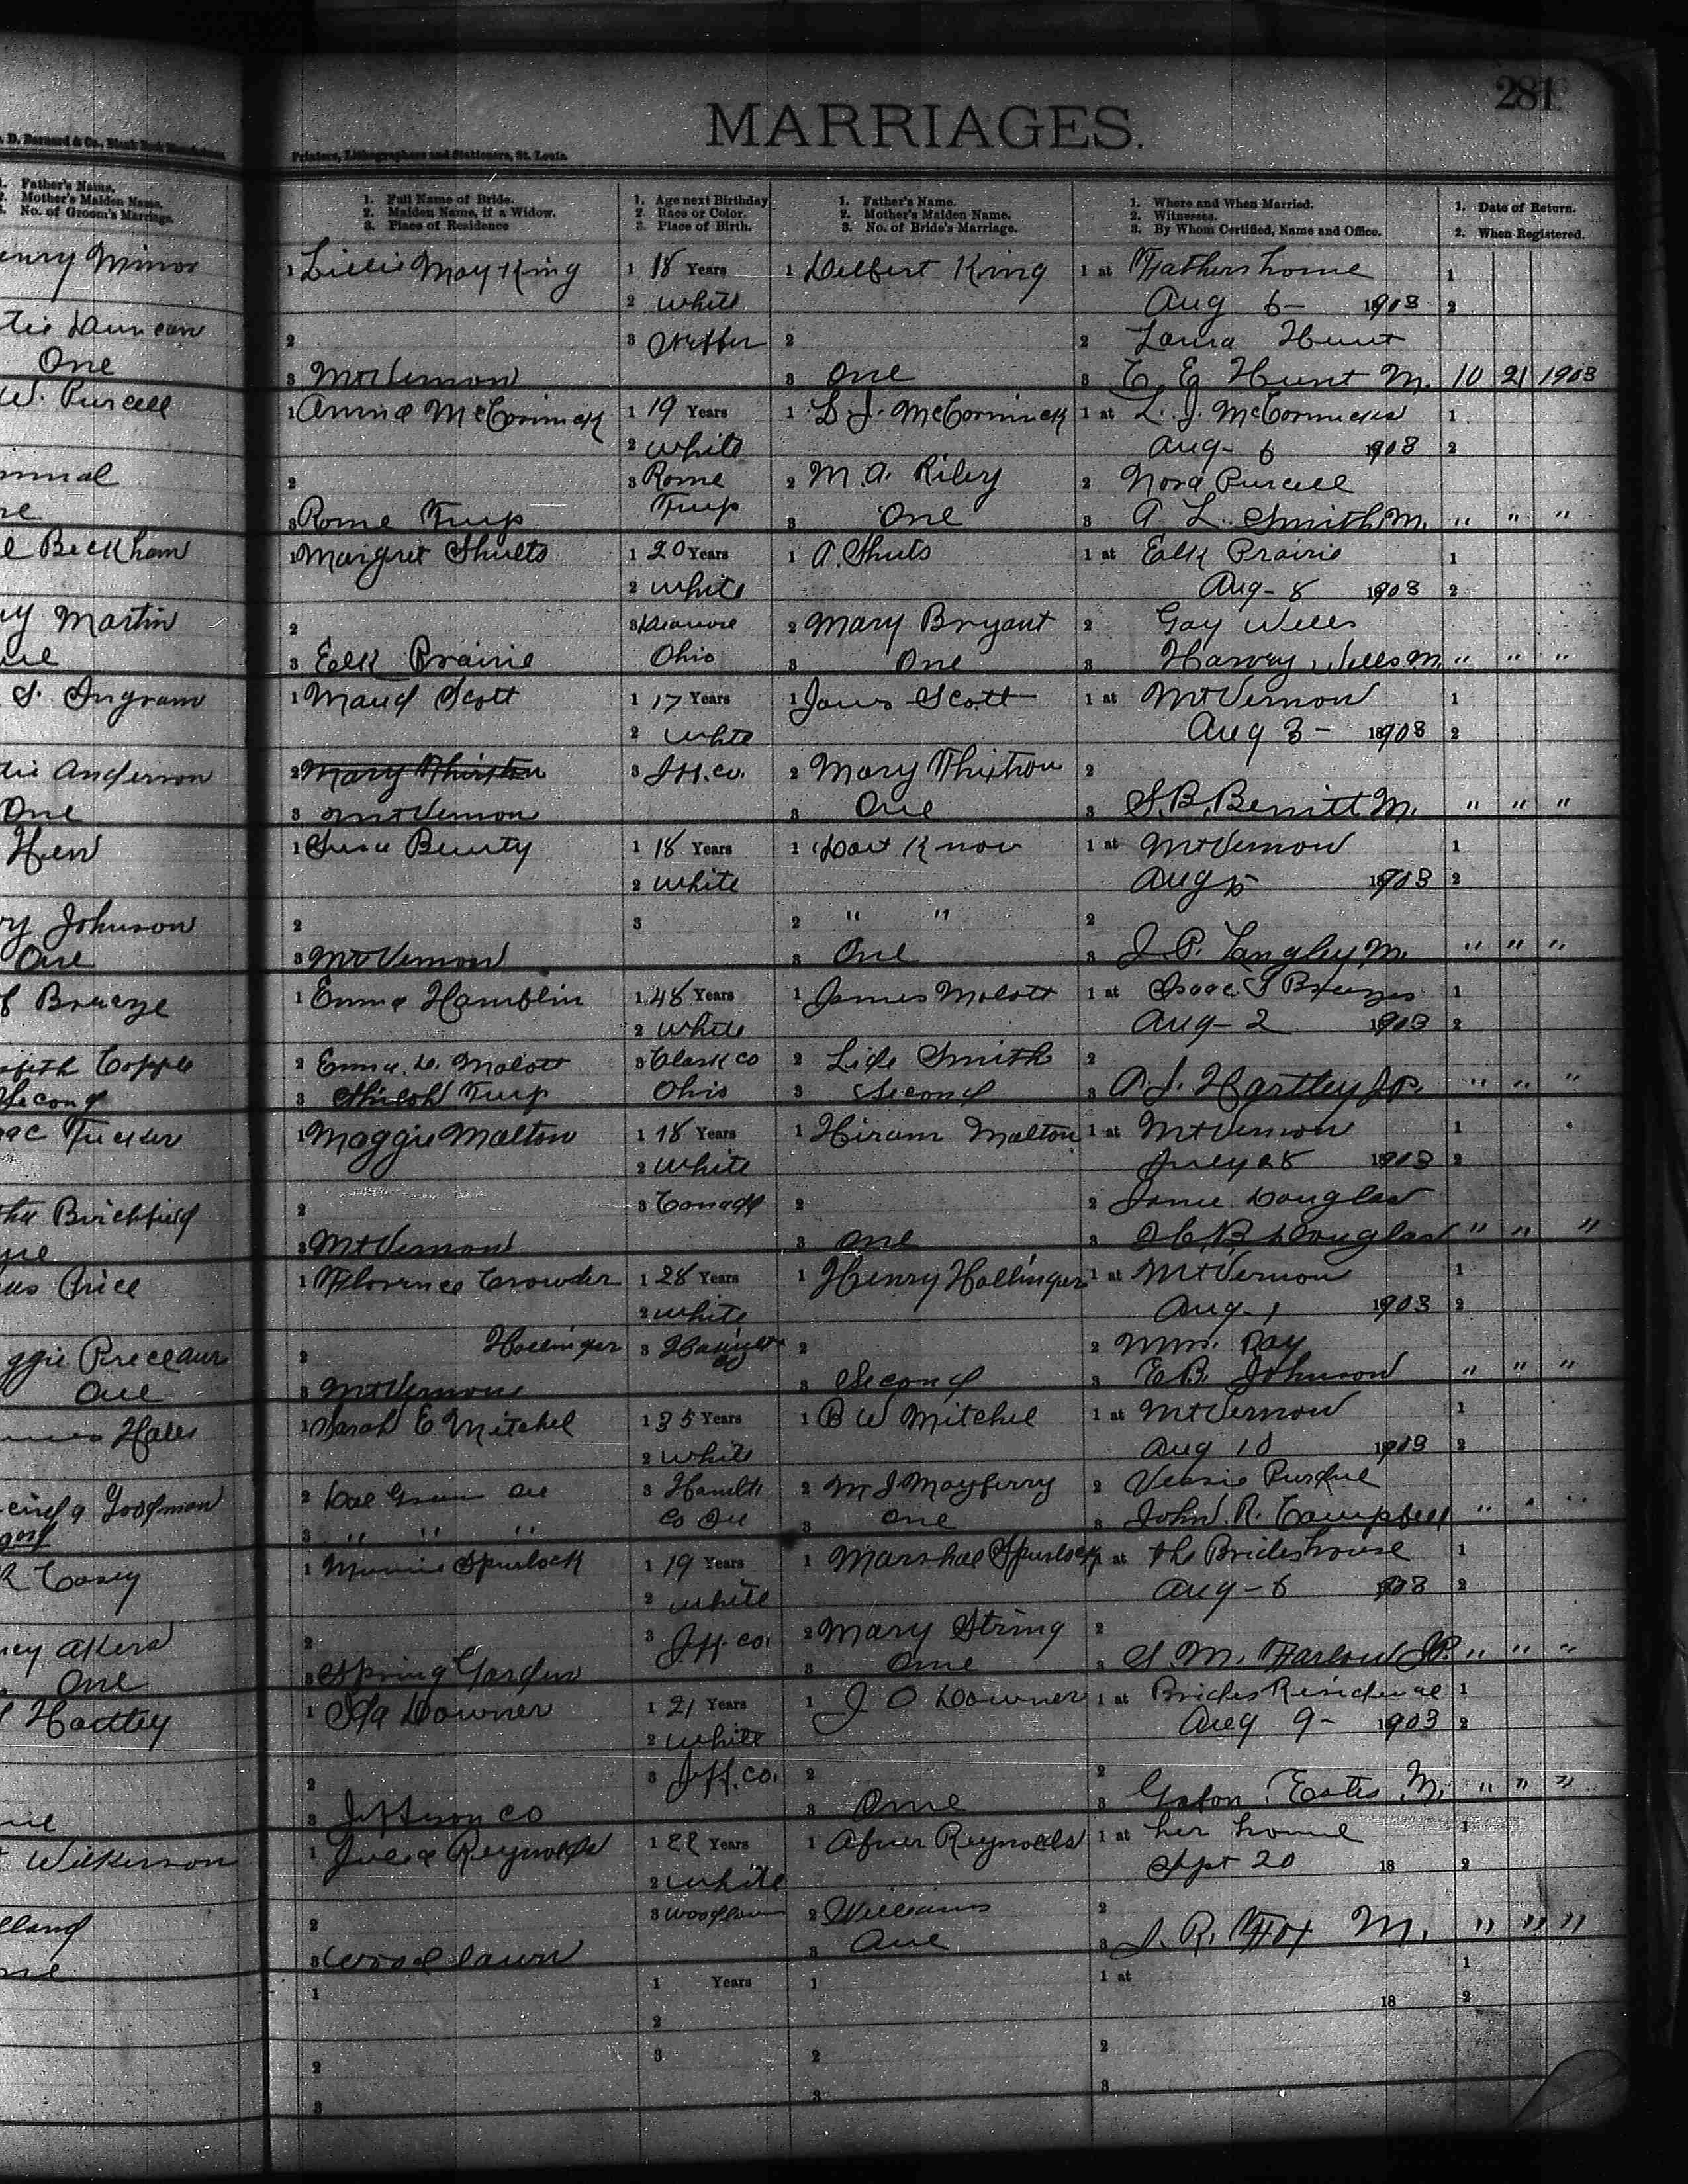 281
MARRIAGES.
D. Barnard & Co., Blank Book Manufacturers,
Printers, Lithographers and Stationers, St. Louis.
1. Father's Name. 2. Mother's Maiden Name. 3. No. of Groom's Marriage.
1. Full Name of Bride. 2. Maiden Name, if a Widow. 3. Place of Residence
1. Age next Birthday 2. Race or Color. 3. Place of Birth.
1. Father's Name. 2. Mother's Maiden Name. 3. No. of Bride's Marriage.
1. Where and When Married. 2. Witnesses. 3. By Whom Certified, Name and Office.
1. Date of Return. 2. When Registered.
enry Minor 1 Lillie May King 1 18 Years 1 Delbert King 1 at Fathers home 1
2 White Aug 6 - 1903 2
tie Duncan 2 3 2 2 Laura Hunt
One 3 Mt Vernon 3 One 3 C. E. Hunt M. 10 21 1903
W. Purcell 1 Anna McCormick 1 19 Years 1 L. J. McCormick 1 at L. J. McCormicks 1
2 White Aug - 6 1903 2
2 3 Rome 2 M. A. Riley 2 Nora Purcell
3 Rome Twp Twp 3 One 3 A. L. Smith M. " " "
Beckham 1 Margret Shults 1 20 Years 1 A. Shuts 1 at Eelk Prairie 1
2 White Aug - 8 1903 2
y Martin 2 3 2 Mary Bryant 2 Gay Wells
3 Eelk Prairie Ohio 3 One 3 Harvey Wells M " " "
S. Ingram 1 Maud Scott 1 17 Years 1 Scott 1 at Mt Vernon 1
2 White Aug 3 - 1903 2
tie Anderson 2 Mary Thirston 3 Jff. co. 2 Mary Thixton 2
One 3 Mt Vernon 3 One 3 S. B. Benitt M. " " "
Hew 1 Beuty 1 18 Years 1 Dont Know 1 at Mt Vernon 1
2 White Aug 5 1903 2
ry Johnson 2 3 2 " " 2
One 3 Mt Vernon 3 One 3 J. P. Langley M. " " "
Breeze 1 Emma Hamblin 1 48 Years 1 James Molott 1 at Isaac S Breezes 1
2 White Aug - 2 1903 2
abeth Copple 2 Emma. D. Molott 3 Clark co 2 Lide Smith 2
Second 3 Shiloh Twp Ohio 3 Second 3 A. J. Hartley J.P. " " "
1 Maggie Malton 1 18 Years 1 Hiram Malton 1 at Mt Vernon 1
2 White July 28 1903 2
Birchfield 2 3 Canada 2 2 Janie Douglas
3 Mt Vernon 3 One 3 B Douglas " " "
Price 1 Florence Crowder 1 28 Years 1 Henry Hollinger 1 at Mt Vernon 1
2 White Aug - 1 1903 2
2 Hollinger 3 2 2 Wm. Ray
One 3 Mt Vernon 3 Second 3 E. B. Johnson " " "
Hales 1 Sarah E Mitchel 1 35 Years 1 B W Mitchel 1 at Mt Vernon 1
2 White Aug 10 1903 2
Goodman 2 3 Hamilt 2 M J Mayberry 2 Purdue
3 " " " Co Ill 3 One 3 John. R. Campbell " " "
R Casey 1 Spurlock 1 19 Years 1 Marshal Spurlock 1 at the Brides house 1
2 White Aug - 6 1903 2
ney Akers 2 3 Jff. co. 2 Mary String 2
One 3 Spring Garden 3 One 3 S. M. Farlow J.P. " " "
Hartley 1 Ida Downer 1 21 Years 1 J O Downer 1 at Brides Residence 1
2 White Aug 9 - 1903 2
2 3 Jff. co. 2 2
3 Jefferson CO 3 One 3 Estes M. " " "
Wilkerson 1 Julia Reynolds 1 22 Years 1 Abner Reynolds 1 at her home 1
2 White Sept 20 18 2
lland 2 3 Woodlawn 2 Williams 2
3 Woodlawn 3 One 3 J. R. M. " " "
1 1 Years 1 1 at 1
2 18 2
2 3 2 2
3 3 3